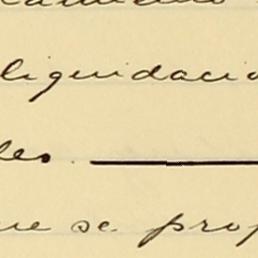 liquidacio
les.
ue se prop